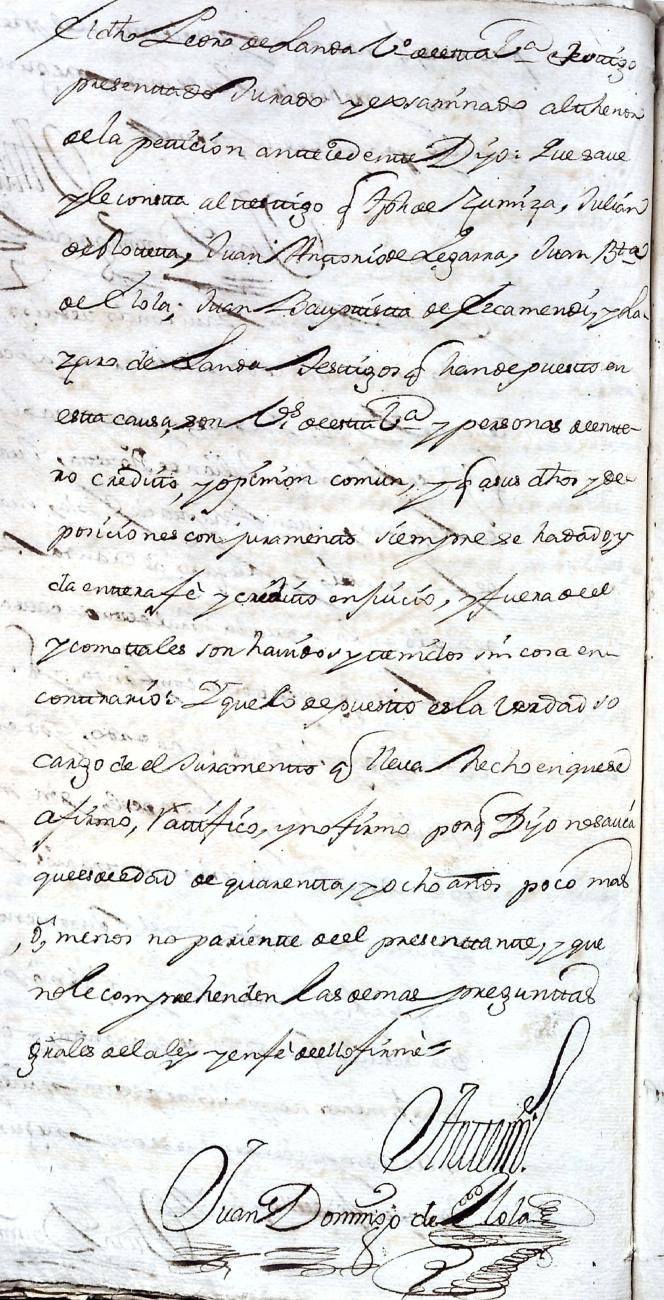 El dho Pedro de Landa Vº de esta Vª testigo
presenttado Jurado y exsaminado al thenor
de la peticion anttecedentte Dijo: Que save
y le constta al testtigo q Jph de Zumiza, Julian
de Rotetta, Juan Antonio de Legarra, Juan Btta
de Elola, Juan Bauptistta de Lecamendi, y La-
zaro de Landa Testtigos q han depuestto en
estta causa, son Vºs de estta Vª y personas de entte-
ro creditto, y opinion comun, y q a sus dhos y de-
posiciones con juramentto siempre se ha dado y
da enttera feè y creditto en juicio, y fuera de el
y como ttales son havidos y ttenidos sin cosa en
conttrario: Y que lo depuestto es la verdad so
cargo de el Juramentto q lleva hecho en que se
afirmó, Rattificó, y no firmo porq Dijo no savia
que es de edad de quarentta, y ocho años poco mas
ò, menos no parientte de el presenttantte, y que
no le comprehenden las demas pregunttas
grâles de la ley y en feè de ello firmè =
Antemi
Juan Domingo de Elola